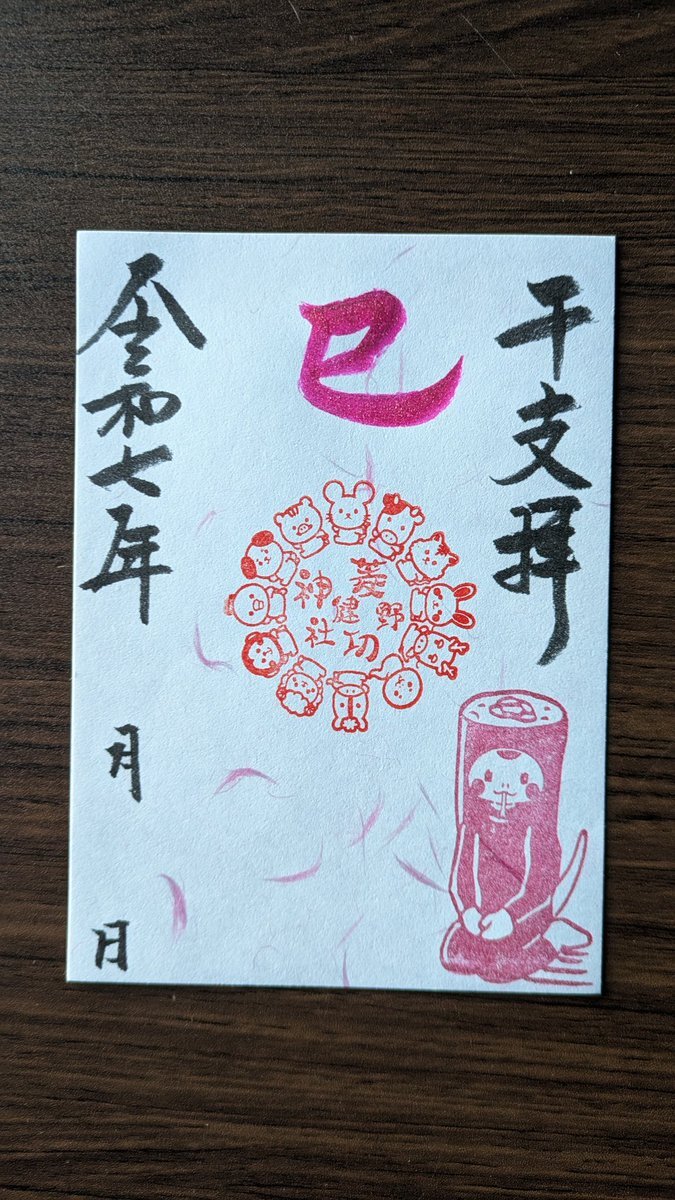 干支拝
巳
菱野
健功
神社
令和七年
月
日